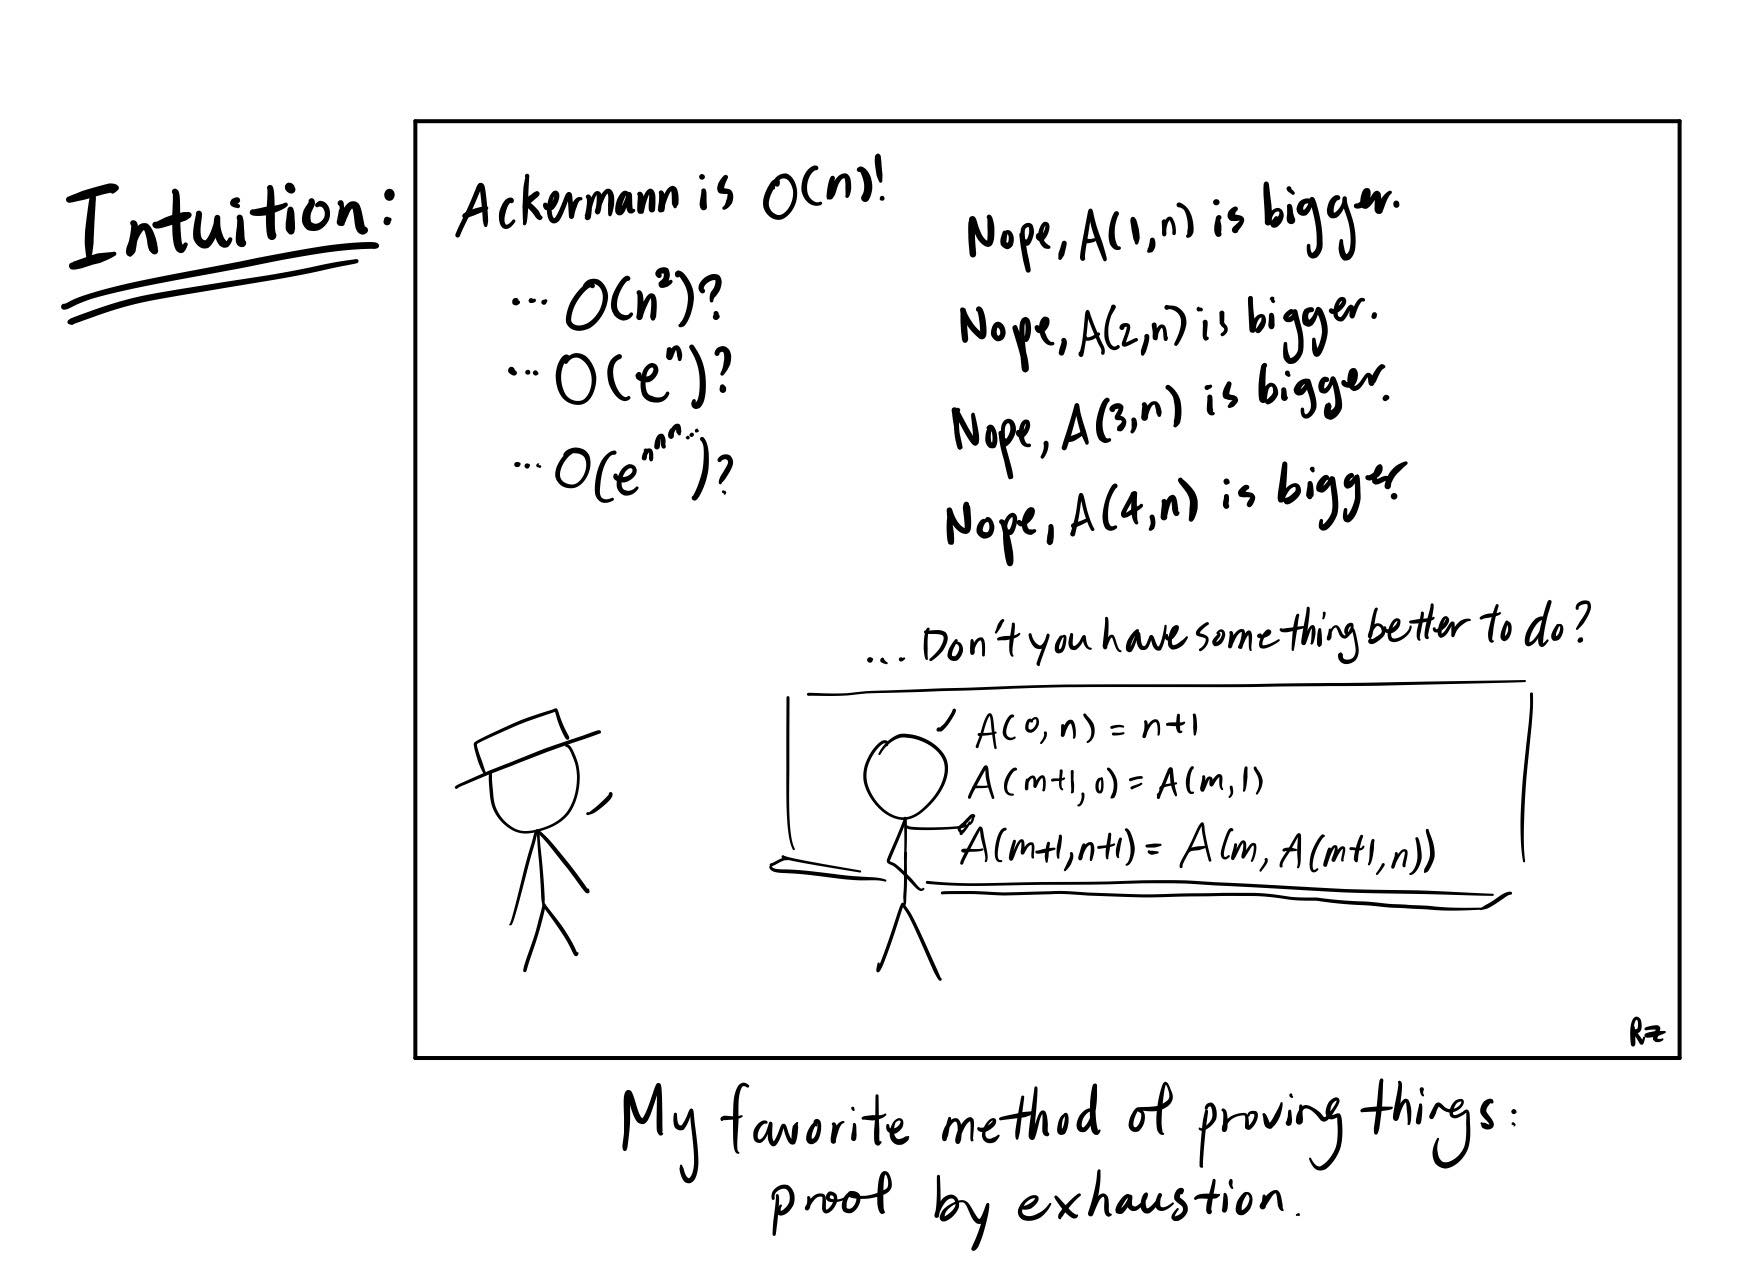 Intuition:
Ackermann is O(n)!
Nope, A(1,n) is bigger.
... O(n²)?
Nope, A(2,n) is bigger.
... O(eⁿ)?
Nope, A(3,n) is bigger.
... O(e^n^n^n^...)?
Nope, A(4,n) is bigger
... Don't you have something better to do?
A(0,n) = n+1
A(m+1,0) = A(m,1)
A(m+1,n+1) = A(m, A(m+1,n))
RZ
My favorite method of proving things:
proof by exhaustion.